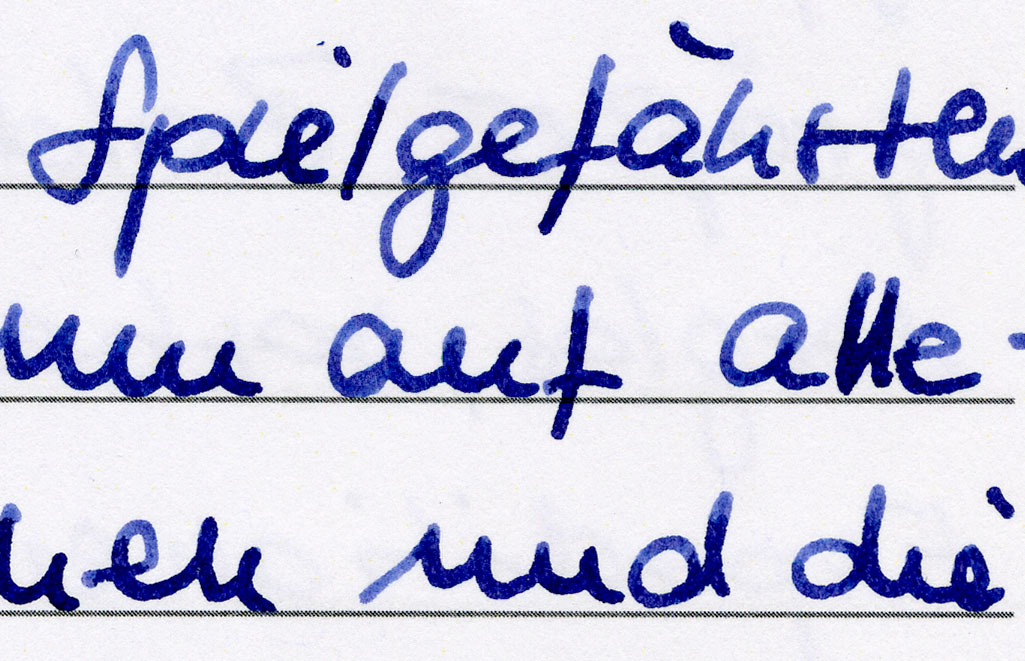 Spielgefährten
auf alle-
und die